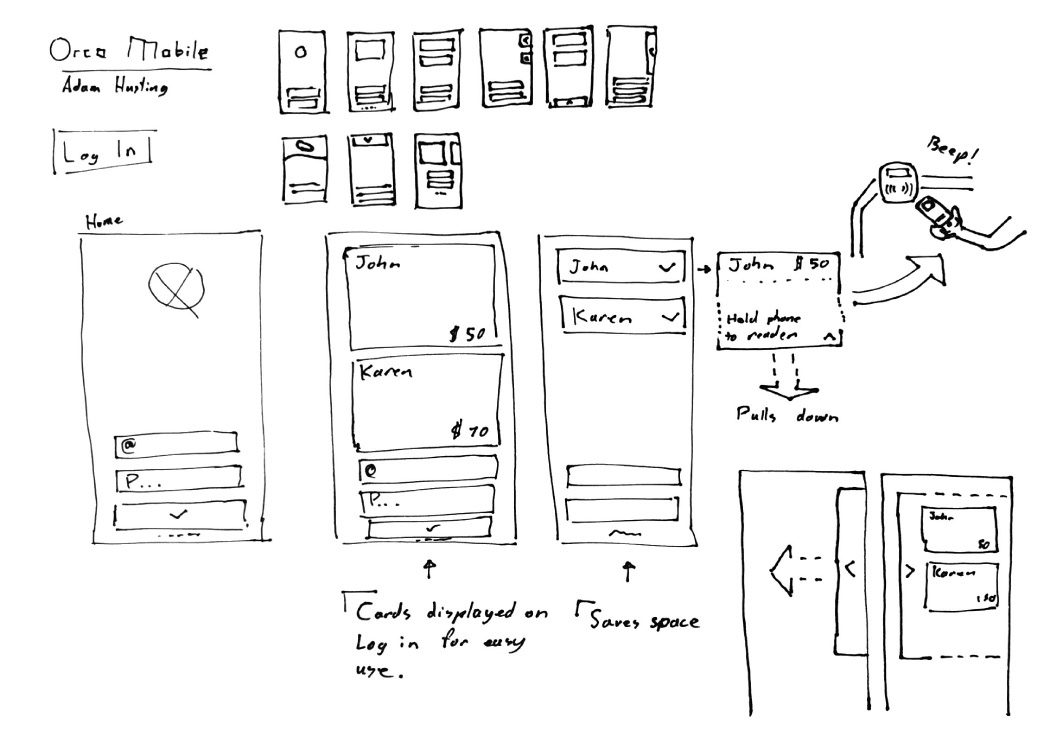 Orca Mobile
Adam Husting
Log In
Beep!
Home
@
P...
John
$50
Karen
$70
@
P...
John
Karen
John $50
Hold phone
to reader
Pulls down
Cards displayed on
Log in for easy
use.
Saves space
John
50
Karen